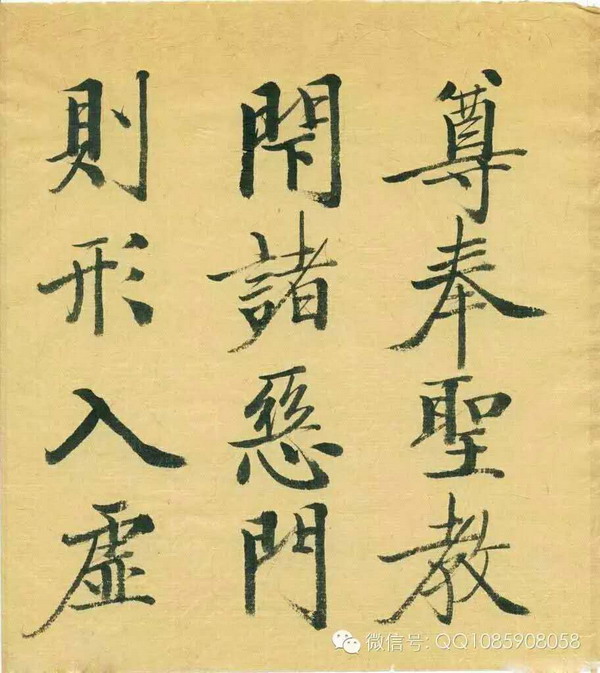 尊奉聖教
閇諸惡門
則形入虚
微信号: QQ1085908058